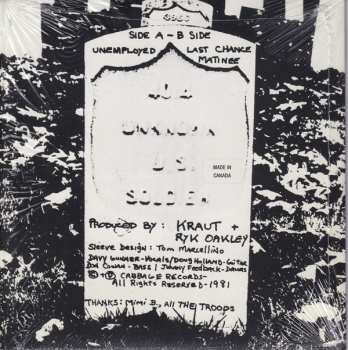 SIDE A - B SIDE
UNEMPLOYED LAST CHANCE
MATINEE
UNKNOWN
U.S.
SOLDIER
MADE IN
CANADA
PRODUCED BY: KRAUT +
RYK OAKLEY
SLEEVE DESIGN: TOM MARCELLINO
DAVY GUNNER-VOCALS/DOUG HOLLAND-GUITAR
DON COWAN-BASS/JOHNNY FEEDBACK-DRUMS
© + ℗ CABBAGE RECORDS-
ALL RIGHTS RESERVED-1981
THANKS: MIMI B., ALL THE TROOPS